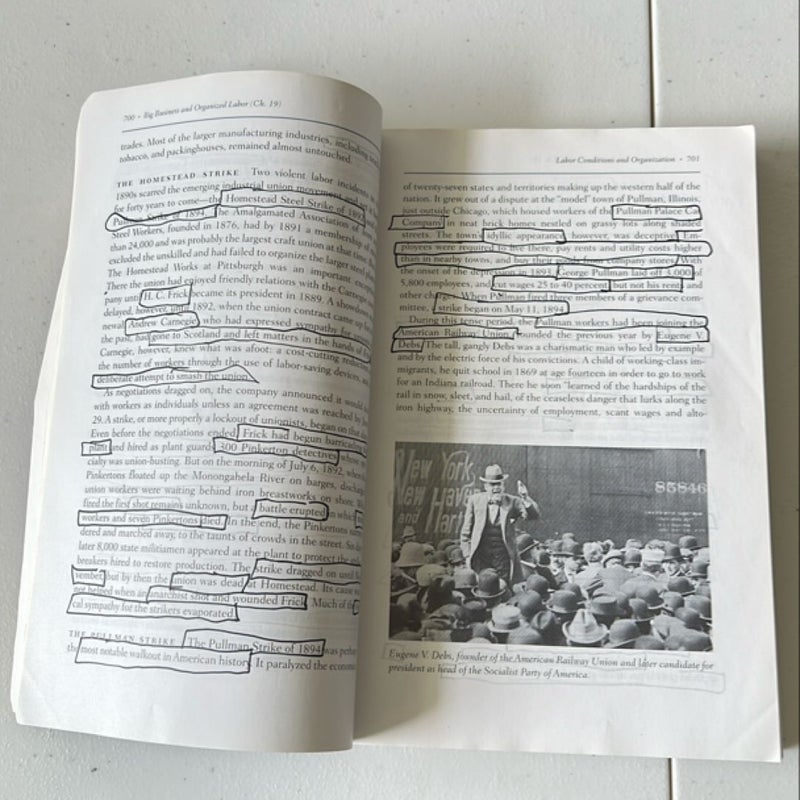 700 • Big Business and Organized Labor (Ch. 19)
trades. Most of the larger manufacturing industries, including
tobacco, and packinghouses, remained almost untouched.
THE HOMESTEAD STRIKE Two violent labor incidents
1890s scarred the emerging industrial union movement and
for forty years to come—the Homestead Steel Strike of 1892
Pullman Strike of 1894. The Amalgamated Association of
Steel Workers, founded in 1876, had by 1891 a membership of
than 24,000 and was probably the largest craft union at that time.
excluded the unskilled and had failed to organize the larger steel
The Homestead Works at Pittsburgh was an important
There the union had enjoyed friendly relations with the Carnegie
pany until H. C. Frick became its president in 1889. A showdown
delayed, however, until 1892, when the union contract came up
newal. Andrew Carnegie, who had expressed sympathy for
the past, had gone to Scotland and left matters in the hands of
Carnegie, however, knew what was afoot: a cost-cutting
the number of workers through the use of labor-saving devices,
deliberate attempt to smash the union.
As negotiations dragged on, the company announced it would
with workers as individuals unless an agreement was reached by
29. A strike, or more properly a lockout of unionists, began on
Even before the negotiations ended, Frick had begun barricading
plant and hired as plant guards 300 Pinkerton detectives whose
cialty was union-busting. But on the morning of July 6, 1892, when
Pinkertons floated up the Monongahela River on barges,
union workers were waiting behind iron breastworks on shore.
fired the first shot remains unknown, but a battle erupted in which
workers and seven Pinkertons died. In the end, the Pinkertons
dered and marched away, to the taunts of crowds in the street. Six
later 8,000 state militiamen appeared at the plant to protect the
breakers hired to restore production. The strike dragged on until
vember, but by then the union was dead at Homestead. Its cause
not helped when an anarchist shot and wounded Frick. Much of the
cal sympathy for the strikers evaporated.
THE PULLMAN STRIKE The Pullman Strike of 1894 was
the most notable walkout in American history. It paralyzed the
Labor Conditions and Organization • 701
of twenty-seven states and territories making up the western half of the
nation. It grew out of a dispute at the "model" town of Pullman, Illinois,
just outside Chicago, which housed workers of the Pullman Palace Car
Company in neat brick homes nestled on grassy lots along shaded
streets. The town's idyllic appearance, however, was deceptive. Em-
ployees were required to live there, pay rents and utility costs higher
than in nearby towns, and buy their goods from company stores. With
the onset of the depression in 1893, George Pullman laid off 3,000 of
5,800 employees, and cut wages 25 to 40 percent, but not his rents and
other charges. When Pullman fired three members of a grievance com-
mittee, a strike began on May 11, 1894.
During this tense period, the Pullman workers had been joining the
American Railway Union, founded the previous year by Eugene V.
Debs. The tall, gangly Debs was a charismatic man who led by example
and by the electric force of his convictions. A child of working-class im-
migrants, he quit school in 1869 at age fourteen in order to go to work
for an Indiana railroad. There he soon "learned of the hardships of the
rail in snow, sleet, and hail, of the ceaseless danger that lurks along the
iron highway, the uncertainty of employment, scant wages and alto-
New York,
New Haven
and Hart
85846
Eugene V. Debs, founder of the American Railway Union and later candidate for
president as head of the Socialist Party of America.